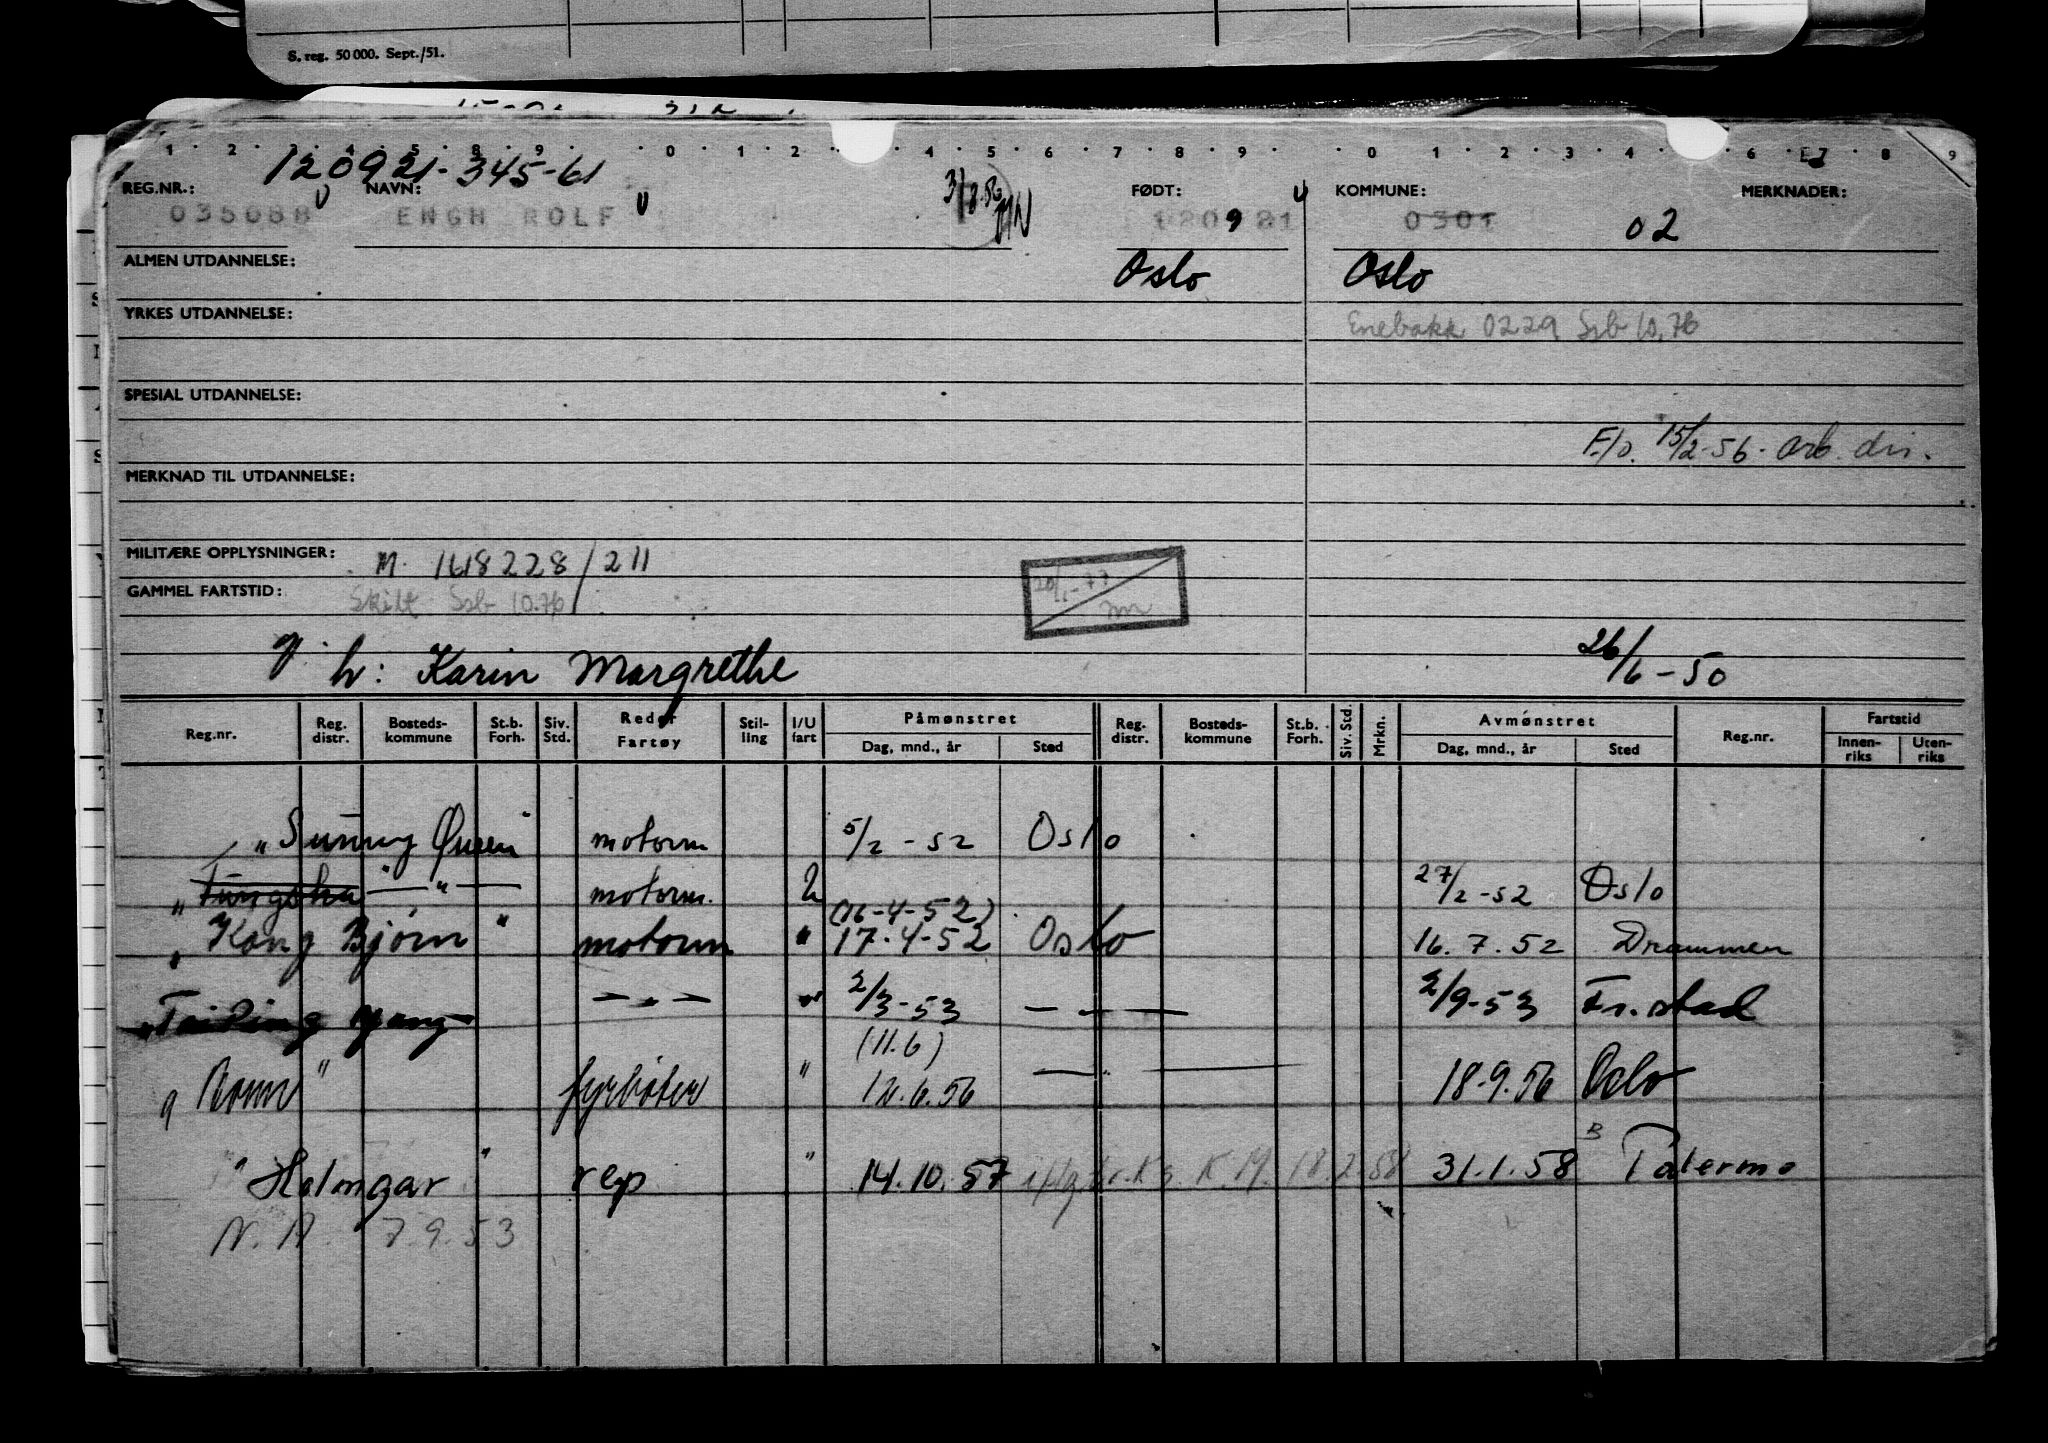 S. reg. 50 000. Sept./51.
1 2 3 4 5 6 7 8 9 0 1 2 4 5 6 7 8 9 0 1 2 3 4 6 7 8 9
120921-345-61
REG.NR.: NAVN: FØDT: KOMMUNE: MERKNADER:
035088 ENGH ROLF 120921 0301 02
ALMEN UTDANNELSE: Oslo Oslo
YRKES UTDANNELSE: Enebakk 0229 Ssb 10.76
SPESIAL UTDANNELSE:
F/o. 15/2-56. arb. dir.
MERKNAD TIL UTDANNELSE:
MILITÆRE OPPLYSNINGER: M. 1618228/211
GAMMEL FARTSTID: Skilt Ssb 10.76
g. h: Karin Margrethe 26/6-50
Reg.nr. Reg. distr. Bosteds-kommune St.b. Forh. Siv. Std. Reder Fartøy Stil-ling I/U fart Påmønstret Dag, mnd., år Sted Reg. distr. Bosteds-kommune St.b. Forh. Siv. Std. Mrkn. Avmønstret Dag, mnd., år Sted Reg.nr. Fartstid Innen-riks Uten-riks
"Sunny Queen" motorm 5/2-52 Oslo
"Tungsha —"— motorm. U 27/2-52 Oslo
(16-4-52)
"Kong Bjørn" motorm " 17-4-52 Oslo 16.7.52 Drammen
"Tai Ping Yang —"— " 2/3-53 —"— 2/9-53 Fr.stad
(11.6)
" fyrbøter " 12.6.56 —"— 18.9.56 Oslo
"Holmgar" rep " 14.10.57 K.M. 18.2.58 31.1.58 Palermo
N.A. 7.9.53